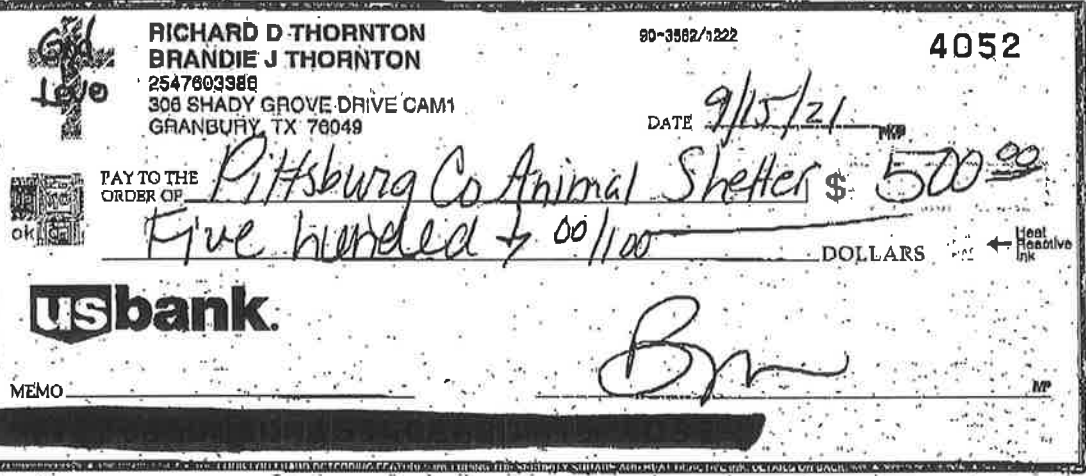 God
Love
RICHARD D THORNTON
BRANDIE J THORNTON
2547603386
306 SHADY GROVE DRIVE CAM1
GRANBURY, TX 76049
90-3582/1222
4052
DATE 9/15/21
PAY TO THE
ORDER OF Pittsburg Co Animal Shelter $ 500 00
Five hundred & 00/100 DOLLARS
Heat
Reactive
Ink
ok
usbank.
MEMO
MP